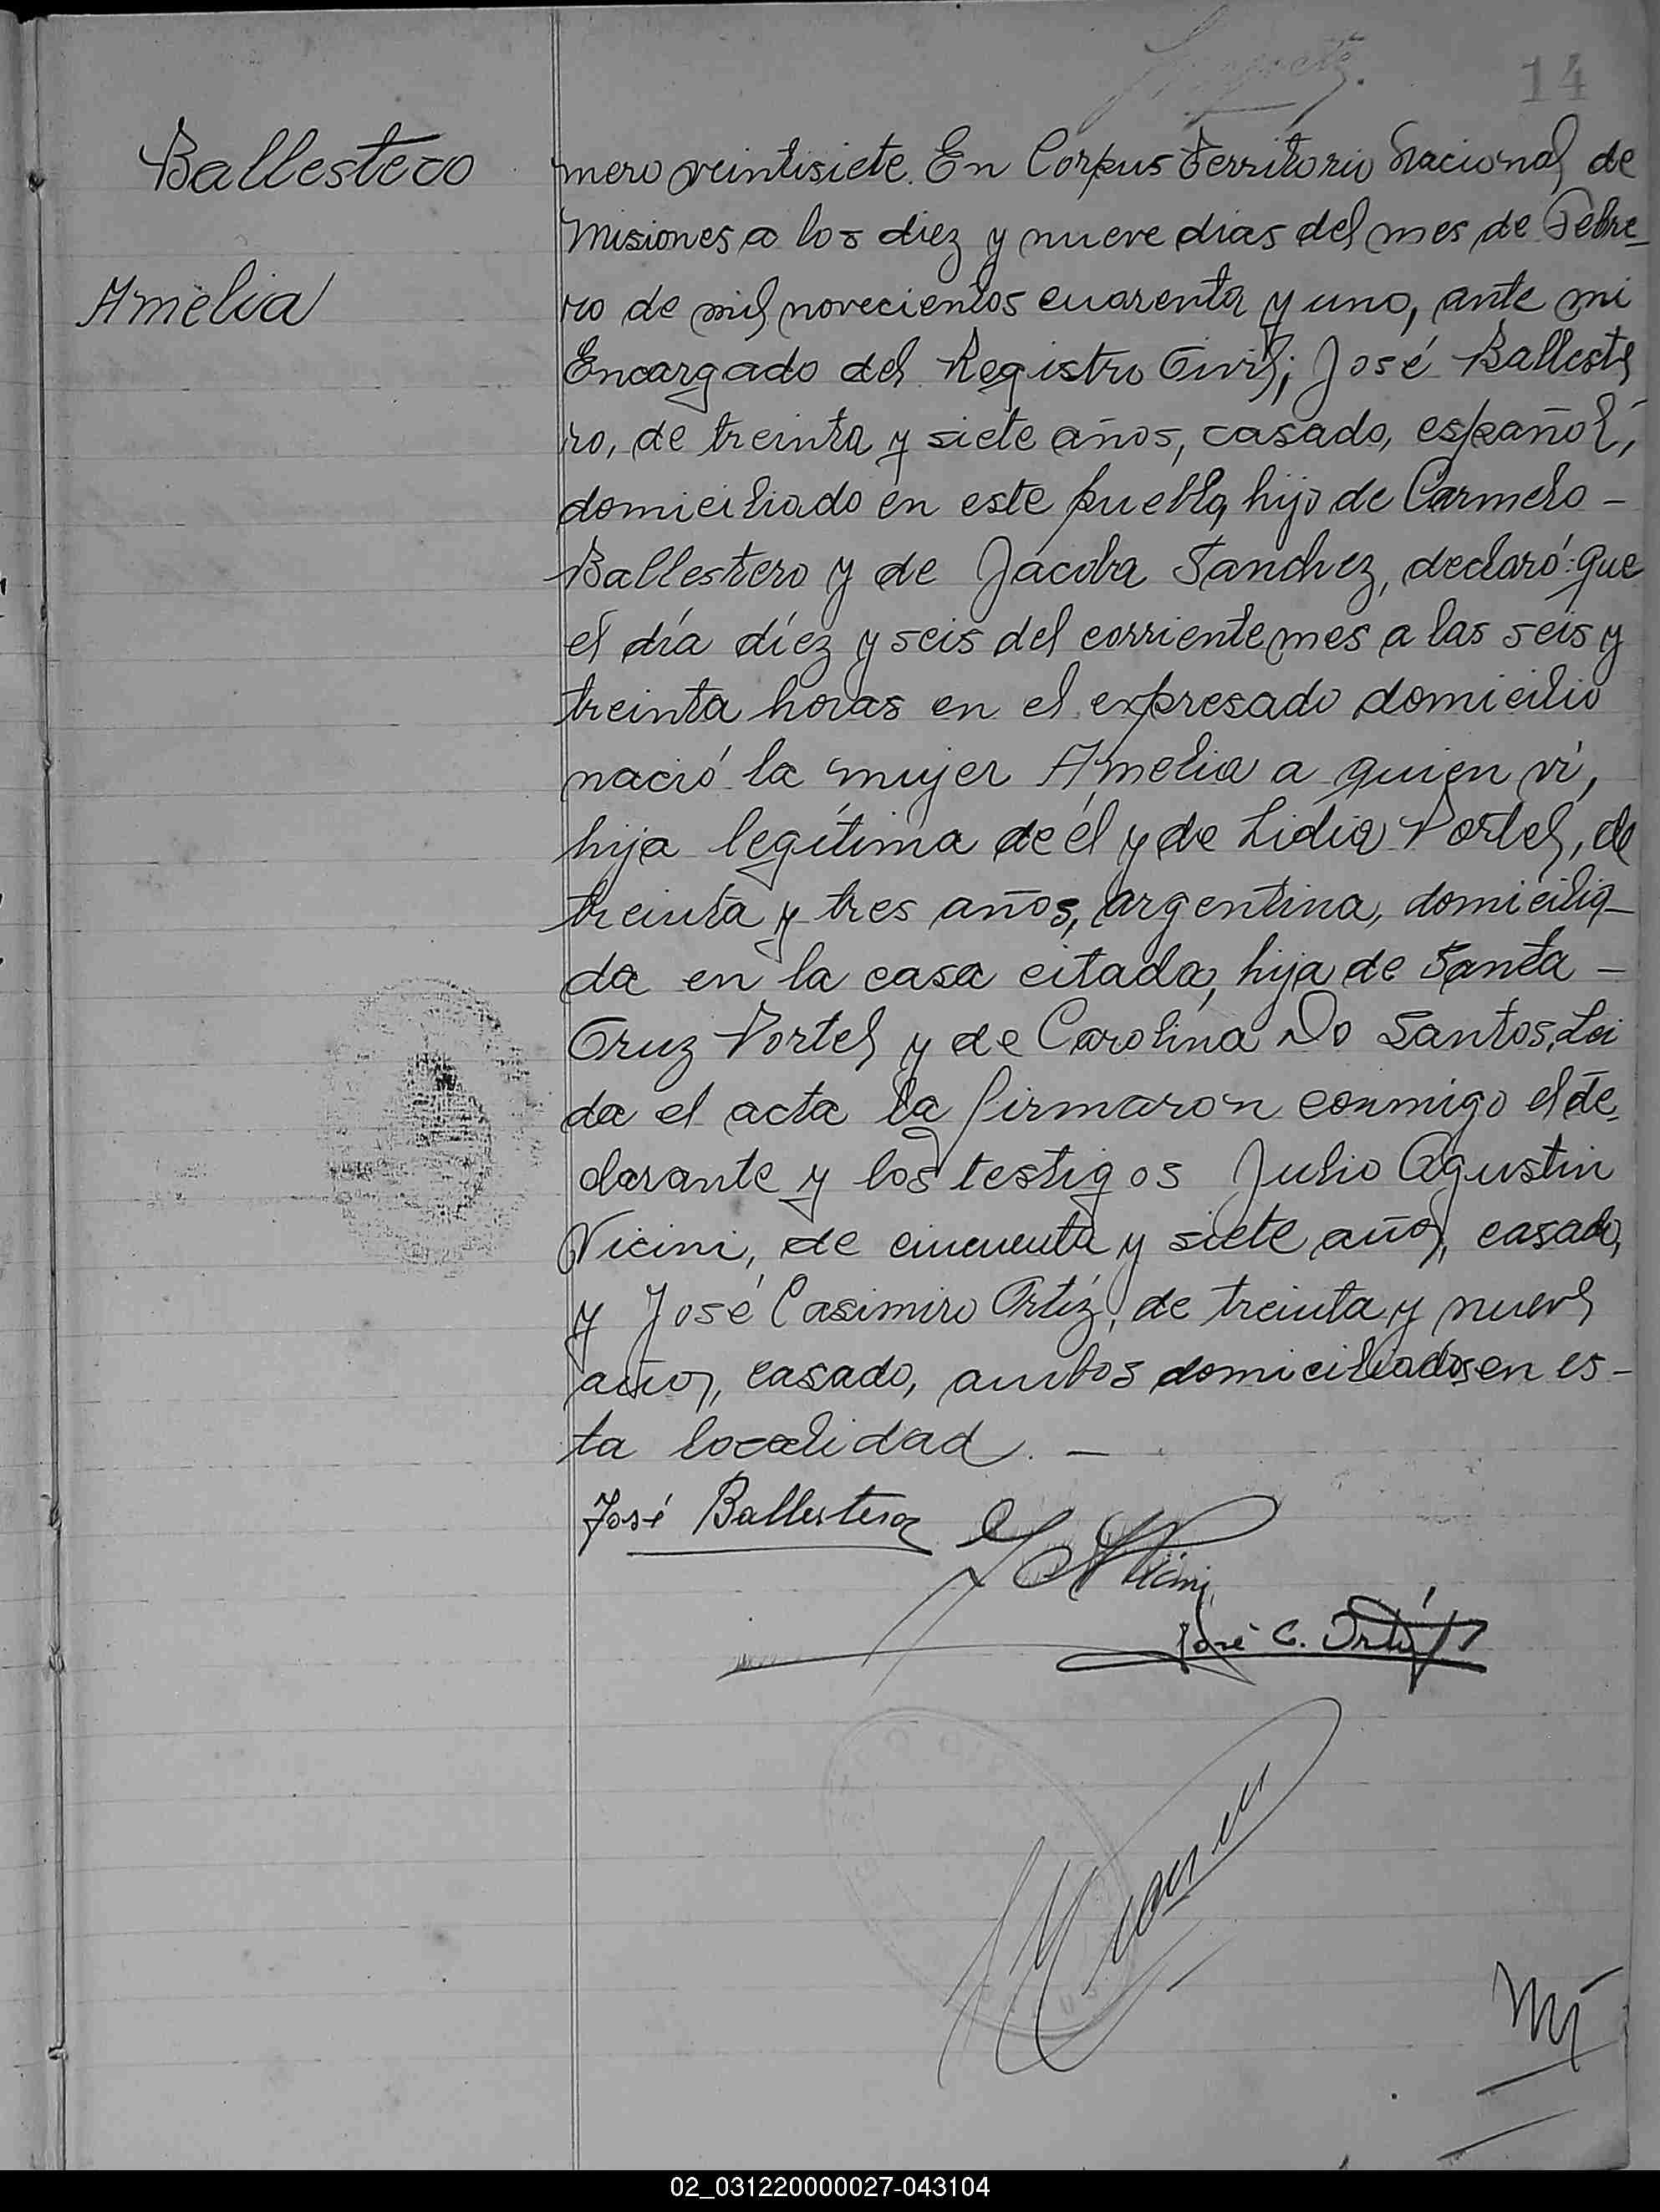 14
Ballestero
Amelia
mero veintisiete. En Corpus Territorio Nacional de
Misiones a los diez y nueve dias del mes de Febre-
ro de mil novecientos cuarenta y uno, ante mi
Encargado del Registro Civil; José Balleste
ro, de treinta y siete años, casado, español,
domiciliado en este pueblo, hijo de Carmelo -
Ballestero y de Jacoba Sanchez, declaró: que
el día diez y seis del corriente mes a las seis y
treinta horas en el expresado domicilio
nació la mujer Amelia a quien vi,
hija legítima de él y de Lidia Portel, de
treinta y tres años, argentina, domicilia-
da en la casa citada, hija de Santa -
Cruz Portel y de Carolina Do Santos, Lei
da el acta la firmaron conmigo el de-
clarante y los testigos Julio Agustin
Vicini, de cincuenta y siete años, casado,
y José Casimiro Ortíz, de treinta y nueve
años, casado, ambos domiciliados en es-
ta localidad. -
José Ballestero
Vicini
José C. Ortíz
02_031220000027-043104